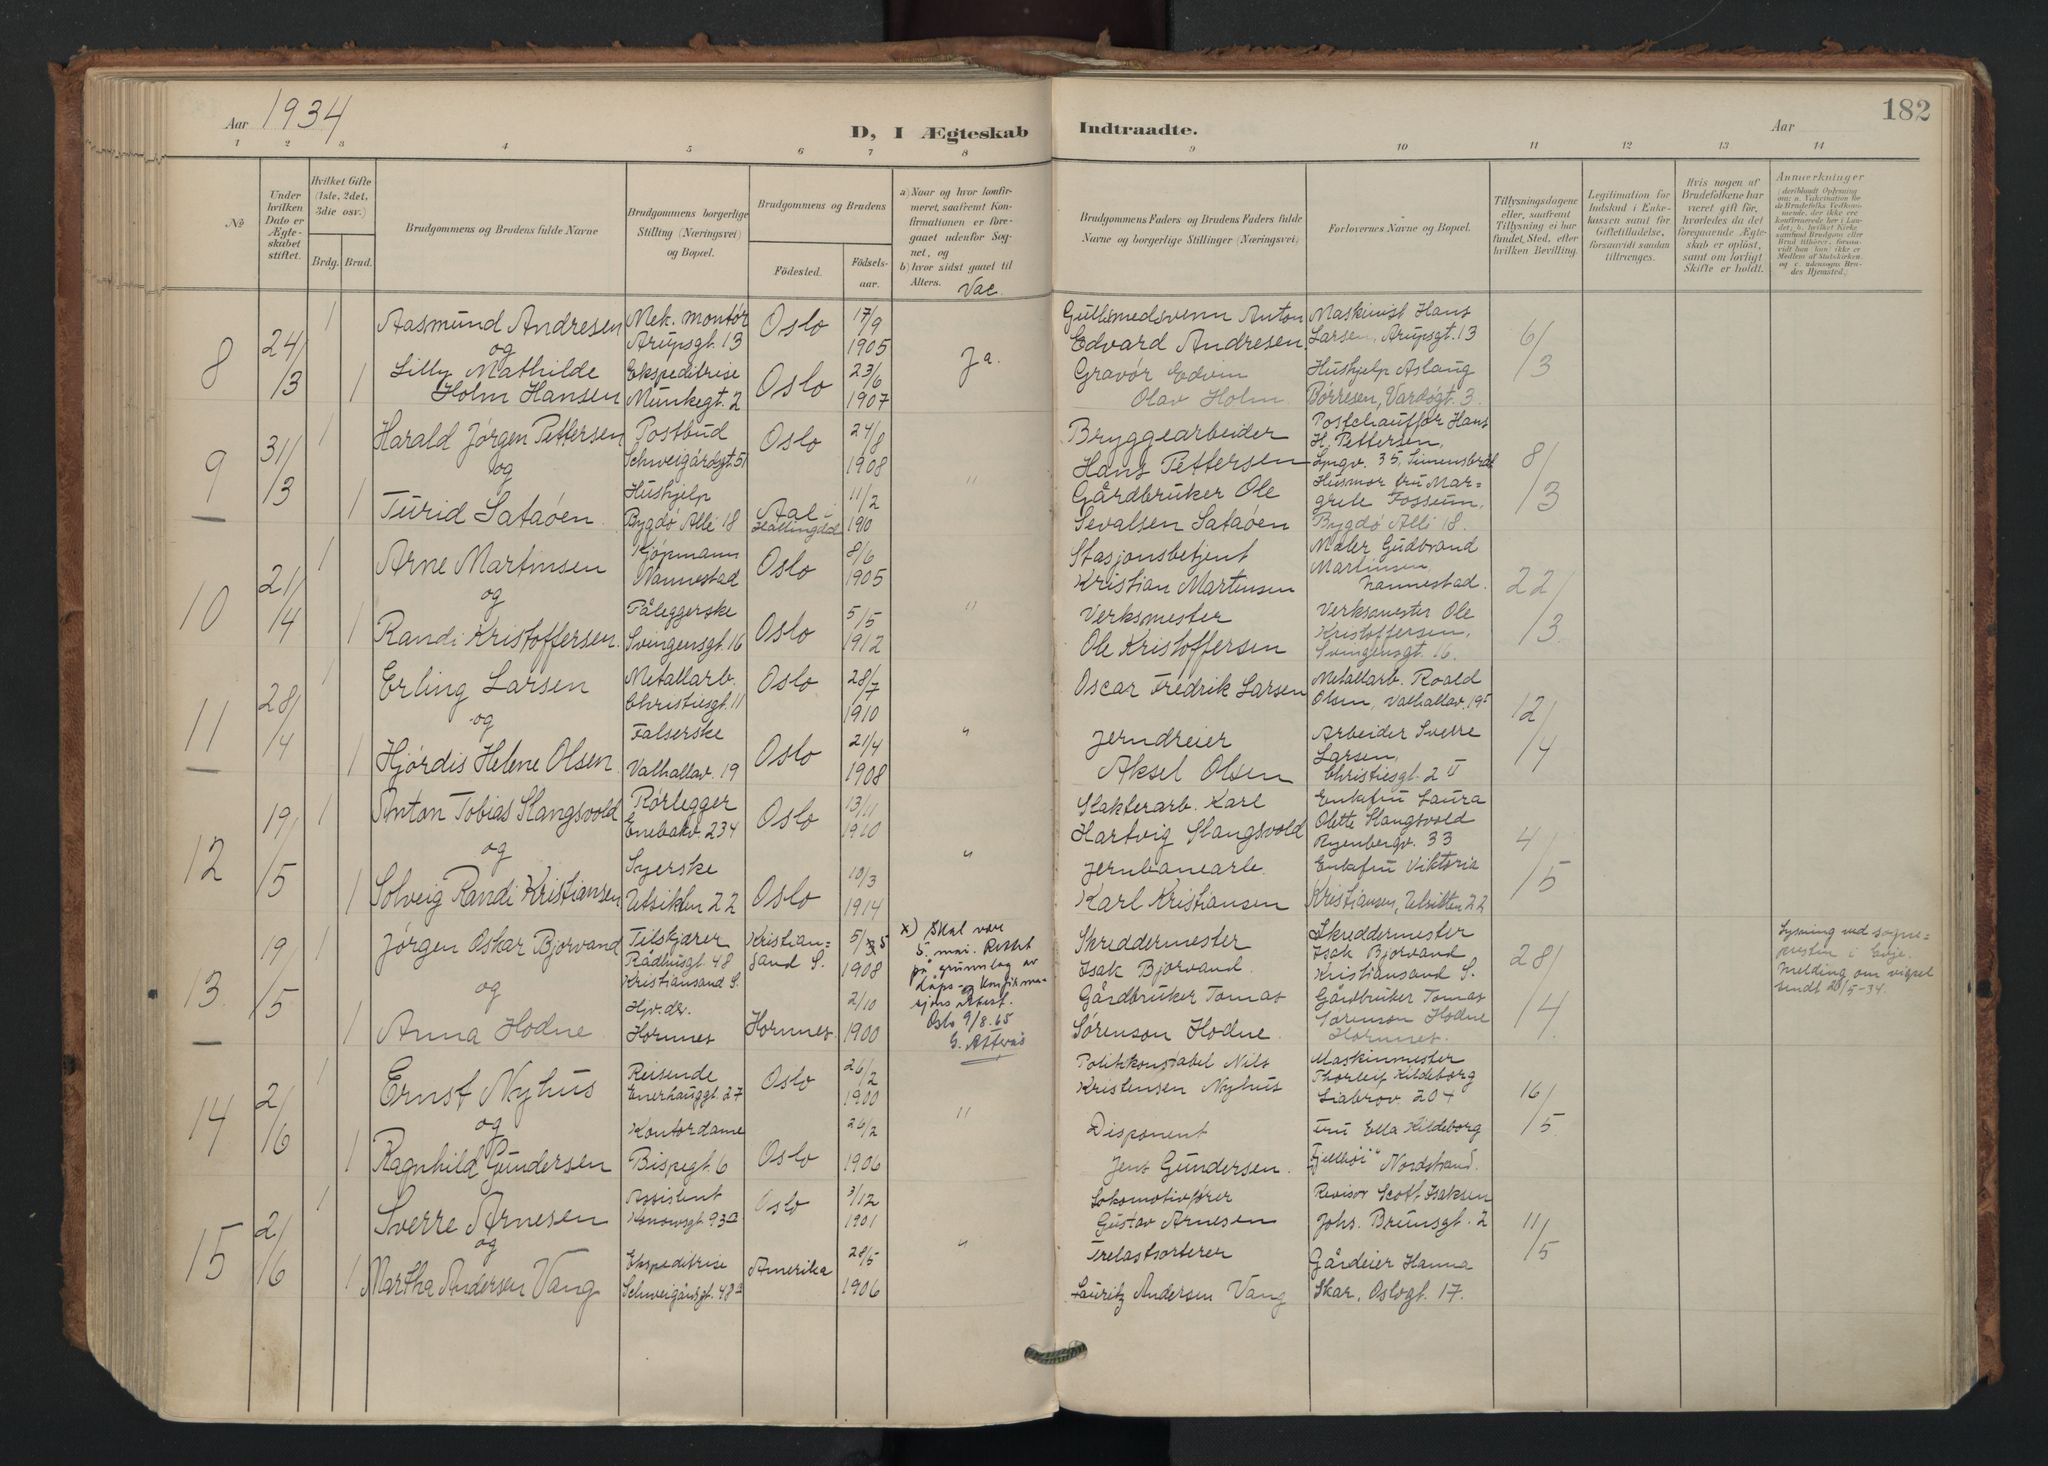 182
Aar 1934
D, I Ægteskab Indtraadte.
Aar
1 2 3 4 5 6 7 8 9 10 11 12 13 14
№
Under hvilken Dato er Ægteskabet stiftet.
Hvilket Gifte (1ste, 2det, 3die osv.)
Brdg. Brud.
Brudgommens og Brudens fulde Navne
Brudgommens borgerlige Stilling (Næringsvei) og Bopæl.
Brudgommens og Brudens
Födested.
Födselsaar.
a) Naar og hvor konfirmeret, saafremt Konfirmationen er foregaaet udenfor Sognet, og
b) hvor sidst gaaet til Alters.
Vac.
Brudgommens Faders og Brudens Faders fulde Navne og borgerlige Stillinger (Næringsvei).
Forlovernes Navne og Bopæl.
Tillysningsdagene eller, saafremt Tillysning ei har fundet Sted, efter hvilken Bevilling.
Legitimation for Indskud i Enkekassen samt for Giftetilladelse, forsaavidt saadan tiltrænges.
Hvis nogen af Brudefolkene har været gift før, hvorledes da det foregaaende Ægteskab er oplöst, samt om lovligt Skifte er holdt.
Anmærkninger
8 24/3 1 Aasmund Andresen Mek. montør Arupsgt. 13 Oslo 17/9 1905 Ja. Gullsmedsvenn Anton Edvard Andresen. Maskinist Hans Larsen, Arupsgt. 13 6/3
og
1 Lilly Mathilde Holm Hansen Ekspeditrise Munkegt. 2 Oslo 23/6 1907 Gravør Edvin Olav Holm. Hushjelp Aslaug Børresen, Vardøgt. 3.
9 31/3 1 Harald Jørgen Pettersen Postbud Schweigårdsgt. 51 Oslo 24/8 1908 " Bryggearbeider Hans Pettersen Postchauffør Hans H. Pettersen, 35, 8/3
og
1 Turid Sataøen. Hushjelp Bygdø Alle 18 Aal i Hallingdal 11/2 190 Gårdbruker Ole Sevalsen Sataøen Husmor fru Margrete Fosseum, Bygdø Alli 18.
10 21/4 1 Arne Martinsen Kjøpmann Nannestad Oslo 8/6 1905 " Stasjonsbetjent Kristian Martensen Maler Gudbrand Martinsen, Nannestad. 22/3.
og
1 Randi Kristoffersen. Påleggerske Svingensgt. 16 Oslo 5/5 1912 Verksmester Ole Kristoffersen Verksmester Ole Kristoffersen, Svingensgt. 16.
11 28/4 1 Erling Larsen Metallarb. Christiesgt. 11 Oslo 28/7 1910 " Oscar Fredrik Larsen Metallarb. Roald Olsen, Valhallav. 19 12/4
og
1 Hjørdis Helene Olsen. Falserske Valhallav. 19 Oslo 21/4 1908 Jerndreier Aksel Olsen Arbeider Sverre Larsen, Christiesgt. 2 II
12 19/5 1 Anton Tobias Slangsvold Rørlegger Enebakv. 234 Oslo 13/11 1910 " Slakterarb. Karl Hartvig Slangsvold Enkefru Laura Olette Slangsvold Ryenbergv. 33 4/5
og
1 Solveig Randi Kristiansen Syerske Utsikten 22 Oslo 10/3 1914 Jernbanearb. Karl Kristiansen Enkefru Viktoria Kristiansen, Utsikten 22
13 19/5 1 Jørgen Oskar Bjorvand Tilskjærer Rådhusgt. 48 Kristiansand S. Kristiansand S. 5/x5 1908 Skreddermester Isak Bjorvand. Skreddermester Isak Bjorvand Kristiansand S. 28/4
x) Skal være 5. mai. Rettet på grunnlag av dåps- og konfirmasjonsattest. Oslo 9/8.65
Lysning ved sognepresten i Evje. Melding om vigsel sendt 20/5-34.
og
1 Anna Hodne Hjv. dr. Hornnes Hornnes. 2/10 1900 Gårdbruker Tomas Sørenson Hodne Gårdbruker Tomas Sørenson Hodne Hornnes.
14 2/6 1 Ernst Nyhus Reisende Enerhauggt. 27 Oslo 26/2 1900 " Politikonstabel Nils Kristensen Nyhus Maskinmester Thorleif Kildeborg Liabrov. 20 16/5
og
1 Ragnhild Gundersen Kontordame Bispegt. 6 Oslo 26/2 1906 Disponent Jens Gundersen. Fru Ella Kildeborg "Fjellhöi" Nordstrand.
15 2/6 1 Sverre Arnesen Assistent Kanonsgt. 93 Oslo 3/12 1901 " Lokomotivfører Gustav Arnesen Revisor Scott Isaksen Johs. Brunsgt. 2 11/5
og
1 Martha Andersen Vang Ekspeditrise Schweigårdsgt. 48 Amerika 28/5 1906 Trelastsorterer Lauritz Andersen Vang Gårdeier Hanna Skar, Oslogt. 17.